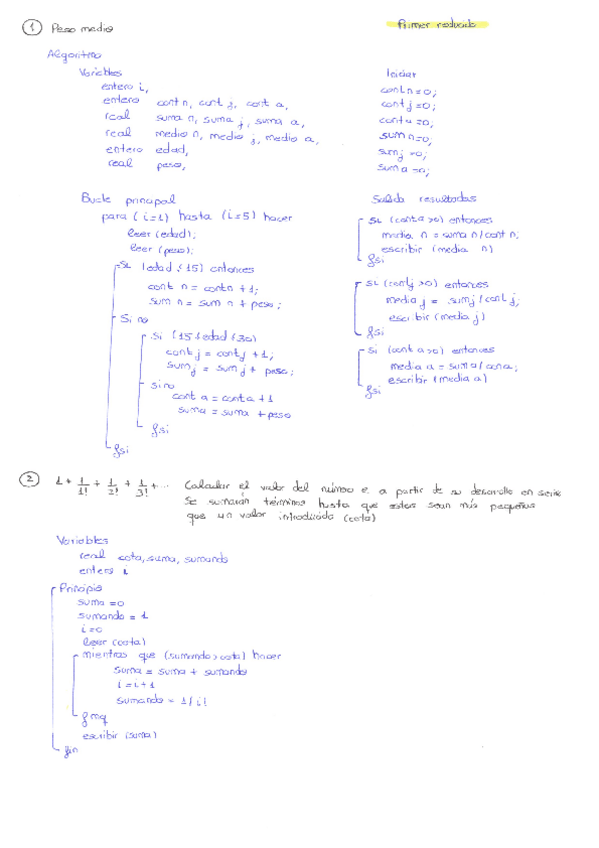 1 Peso medio
Primer reducido
Algoritmo
Variables
entero i,
entero cont n, cont j, cont a,
real suma n, suma j, suma a,
real medio n, medio j, medio a,
entero edad,
real peso,
Iniciar
cont n=0;
cont j=0;
cont a=0;
sum n=0;
sum j=0;
sum a=0;
Bucle principal
para (i=1) hasta (i=5) hacer
leer (edad);
leer (peso);
si (edad ≤ 15) entonces
cont n = cont n + 1;
sum n = sum n + peso;
si no
si (15 ≤ edad ≤ 30)
cont j = cont j + 1;
sum j = sum j + peso;
si no
cont a = cont a + 1
suma = suma + peso
fsi
fsi
Salida resultados
si (cont a >0) entonces
media n = suma n / cont n;
escribir (media n)
fsi
si (cont j >0) entonces
media j = sum j / cont j;
escribir (media j)
fsi
si (cont a >0) entonces
media a = suma / cona;
escribir (media a)
fsi
2 1 + 1/1! + 1/2! + 1/3! + ... Calcular el valor del número e a partir de su desarrollo en serie
Se sumarán términos hasta que estos sean más pequeños
que un valor introducido (cota)
Variables
real cota, suma, sumando
entero i
Principio
suma = 0
sumando = 1
i = 0
leer (cota)
mientras que (sumando > cota) hacer
suma = suma + sumando
i = i + 1
sumando = 1 / i!
fmq
escribir (suma)
fin